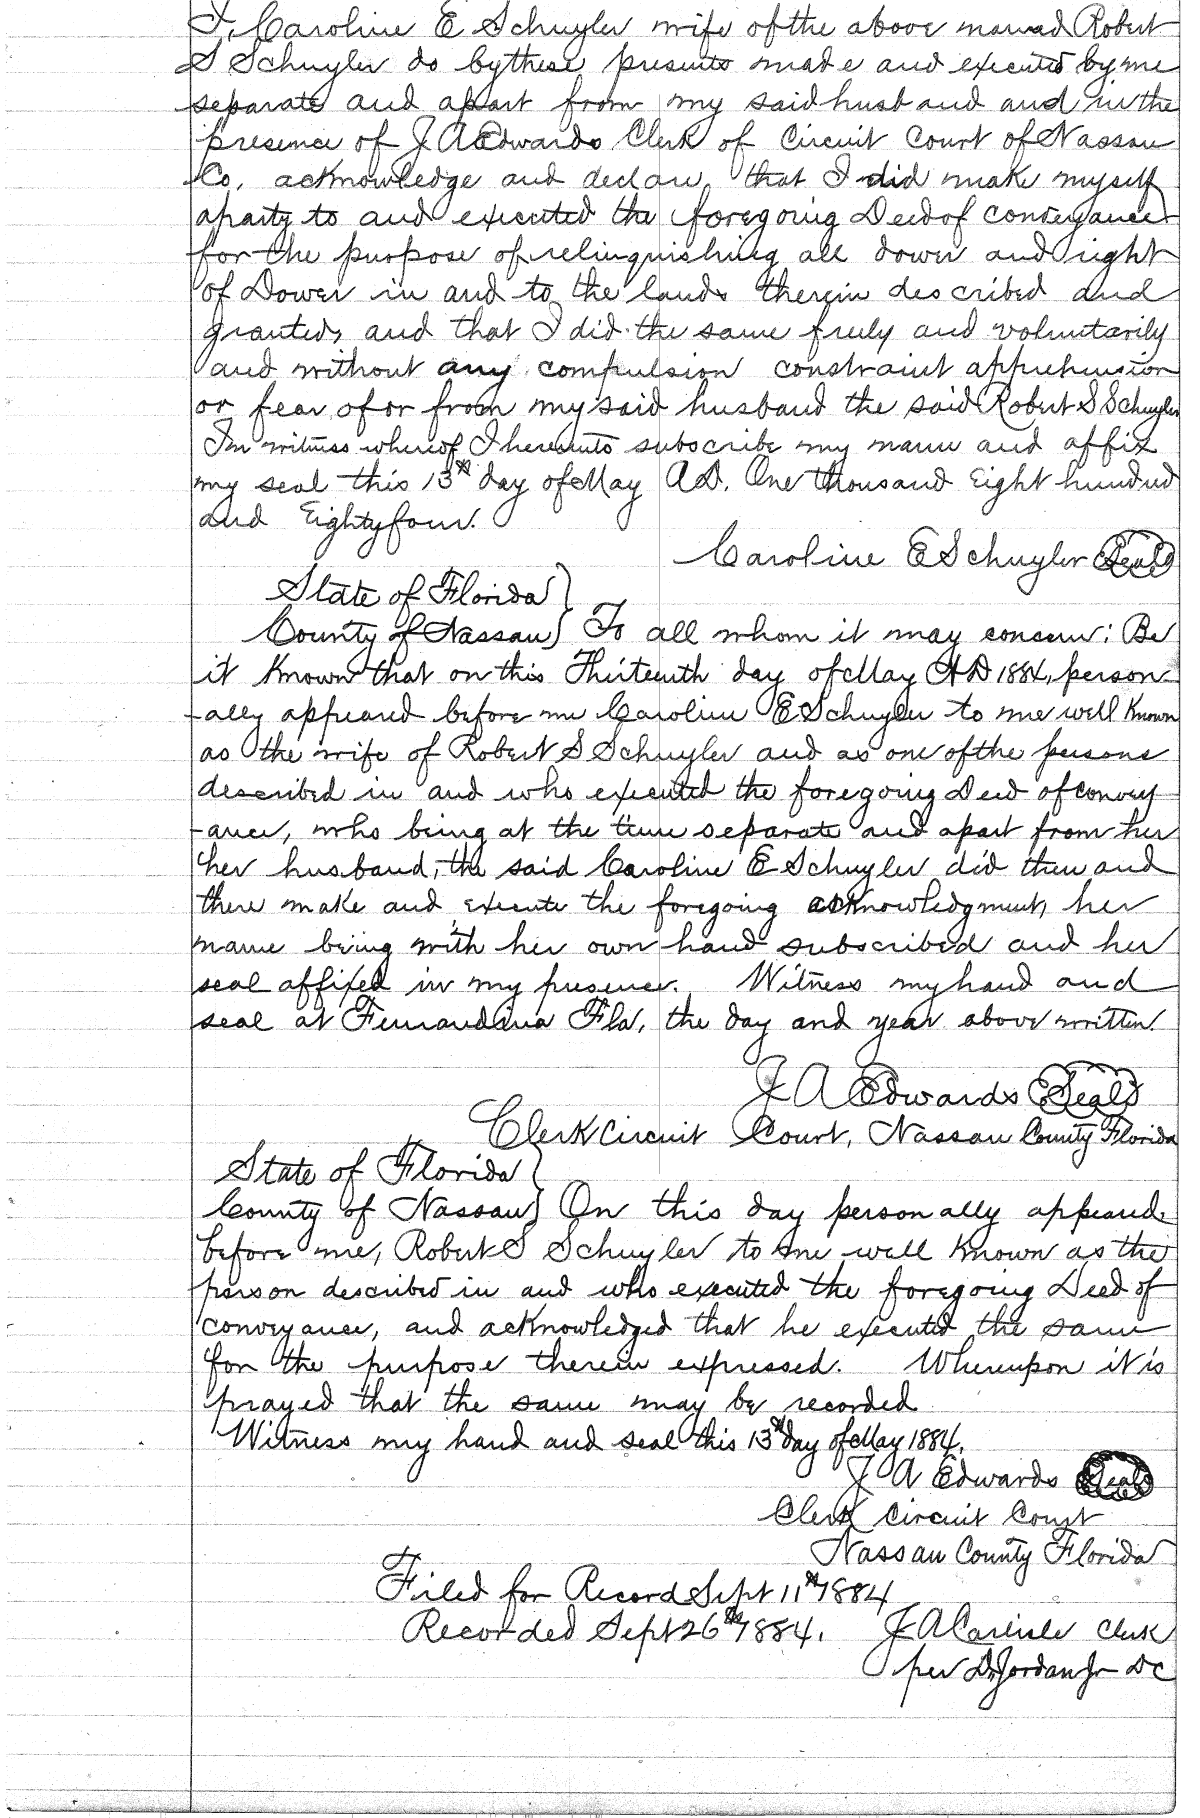 I, Caroline E Schuyler wife of the above named Robert
S Schuyler do by these presents made and executed by me
separate and apart from my said husband and in the
presence of J A Edwards Clerk of Circuit Court of Nassau
Co, acknowledge and declare, that I did make myself
a party to and executed the foregoing Deed of conveyance
for the purpose of relinquishing all dower and right
of Dower in and to the lands therein described and
granted, and that I did the same freely and voluntarily
and without any compulsion constraint apprehension
or fear of or from my said husband the said Robert S Schuyler
In witness whereof I hereunto subscribe my name and affix
my seal this 13th day of May A.D. One thousand Eight hundred
and Eighty four.
Caroline E Schuyler (Seal)
State of Florida }
County of Nassau } To all whom it may concern: Be
it Known that on this Thirteenth day of May A D 1884, person-
-ally appeared before me Caroline E Schuyler to me well Known
as the wife of Robert S Schuyler and as one of the persons
described in and who executed the foregoing Deed of convey
-ance, who being at the time separate and apart from her
her husband, the said Caroline E Schuyler did then and
there make and execute the foregoing acknowledgment, her
name being with her own hand subscribed and her
seal affixed in my presence. Witness my hand and
seal at Fernandina Fla, the day and year above written.
J A Edwards (Seal)
Clerk Circuit Court, Nassau County Florida
State of Florida }
County of Nassau } On this day personally appeared
before me, Robert S Schuyler to me well Known as the
person described in and who executed the foregoing Deed of
conveyance, and acknowledged that he executed the same
for the purpose therein expressed. Whereupon it is
prayed that the same may be recorded
Witness my hand and seal this 13th day of May 1884.
J A Edwards (Seal)
Clerk Circuit Court
Nassau County Florida
Filed for Record Sept 11th 1884
Recorded Sept 26th 1884. J A Carlisle Clerk
per D. Jordan Jr D C